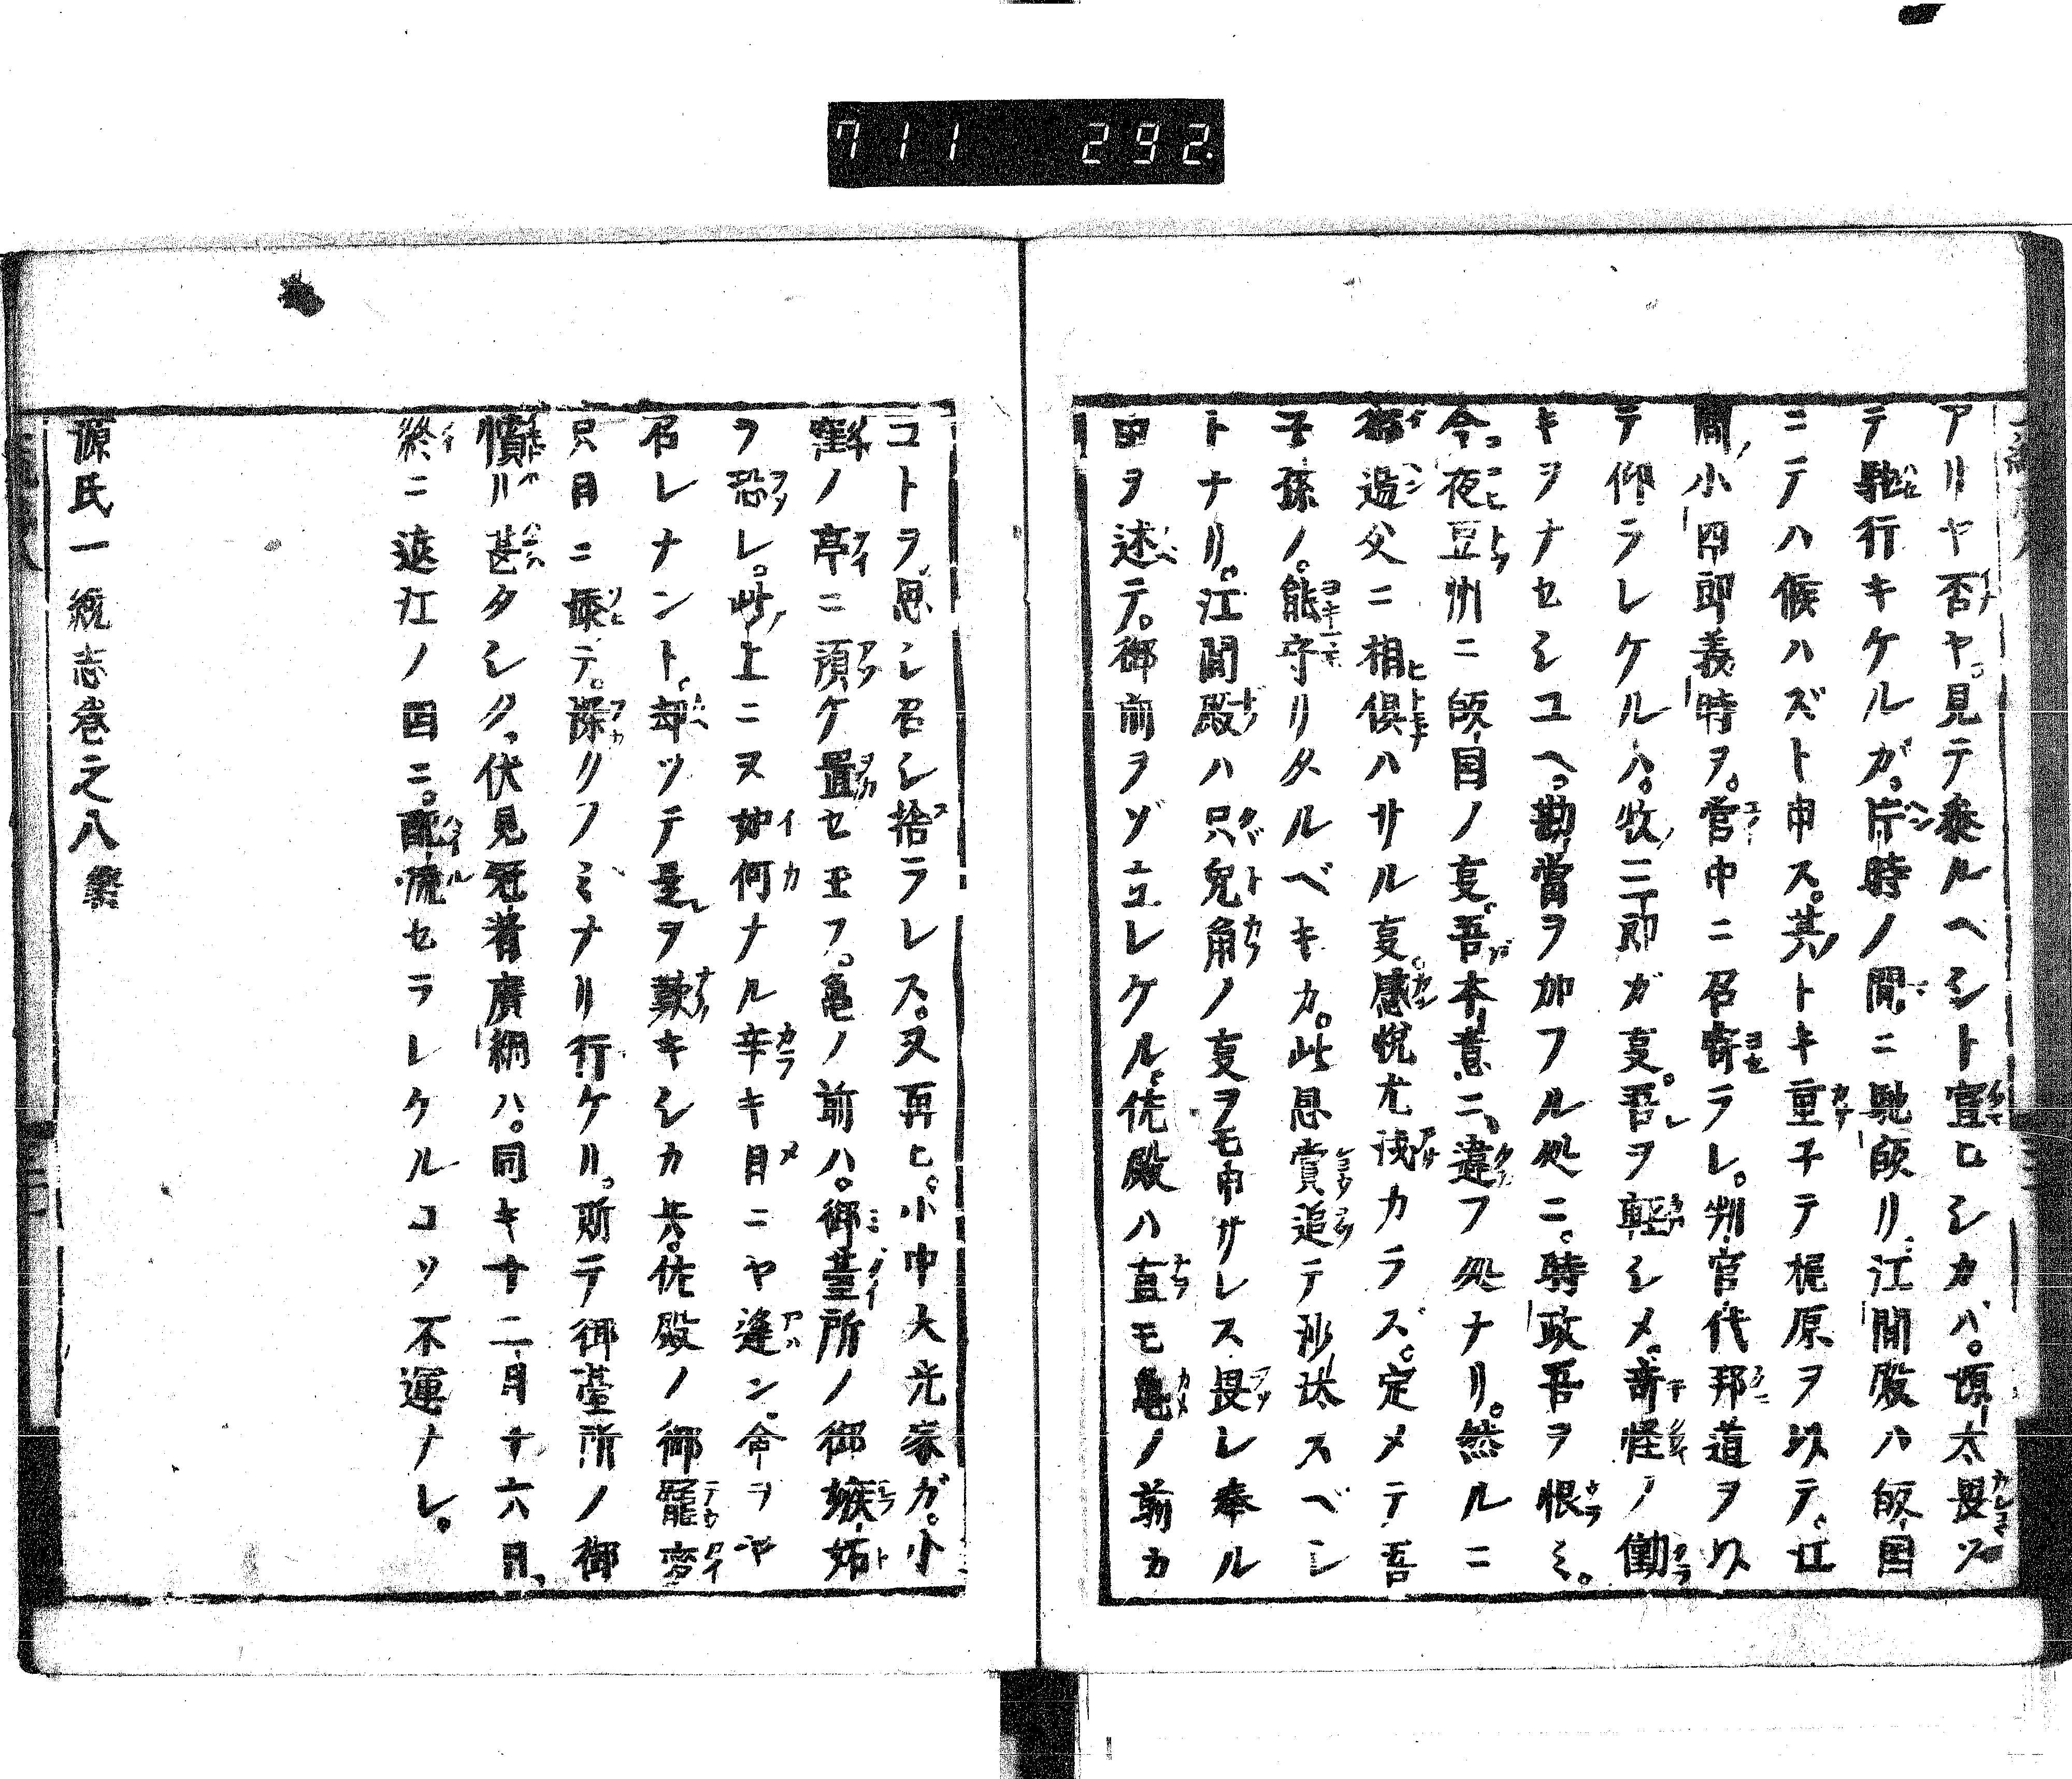 711 292.
アリヤ否ヤ見テ参ルヘシト宣ヒシカハ。源太畏ツ
テ馳行キケルガ。片時ノ間ニ馳皈リ。江間殿ハ皈国
ニテハ候ハズト申ス。其トキ重子テ梶原ヲ以テ。江
間小四郎義時ヲ。営中ニ召寄ラレ。判官代邦道ヲ以
テ仰ラレケルハ。牧三郎ガ叓。吾ヲ軽シメ。奇怪ノ働
キヲナセシユヘ。勘當ヲ加フル処ニ。時政吾ヲ恨ミ。
今夜豆州ニ皈国ノ叓。吾本意ニ違フ処ナリ。然ルニ
祖父ニ相倶ハサル叓。感悦尤浅カラズ。定メテ吾
子孫ノ。能守リタルベキカ。此恩賞追テ沙汰スベシ
トナリ。江間殿ハ只兎角ノ叓ヲモ申サレス畏レ奉ル
由ヲ述テ。御前ヲゾ立レケル。佐殿ハ直モ亀ノ前カ
コトヲ思シ召シ捨ラレス。又再ヒ。小中太光家ガ。小
窪ノ亭ニ預ケ置セ玉フ。亀ノ前ハ。御臺所ノ御嫉妬
ヲ恐レ。此上ニヌ如何ナル辛キ目ニヤ逢ン。命ヲヤ
召レナント。却ツテ是ヲ歎キシカ共。佐殿ノ御寵愛
只月ニ添テ。深クノミナリ行ケリ。斯テ御臺所ノ御
憤リ甚タシク、伏見冠者廣綱ハ。同キ十二月十六日、
終ニ遠江ノ国ニ。配流セラレケルコソ不運ナレ。
源氏一統志巻之八終